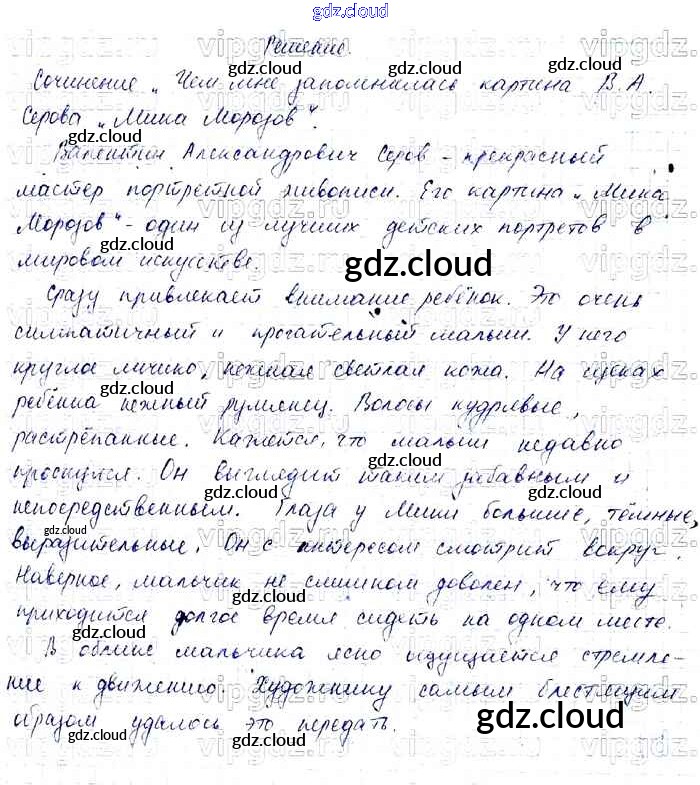 gdz.cloud
Решение.
Сочинение „Чем мне запомнилась картина В. А.
Серова „Мика Морозов".
Валентин Александрович Серов - прекрасный
мастер портретной живописи. Его картина „Мика
Морозов" - один из лучших детских портретов в
мировом искусстве.
Сразу привлекает внимание ребёнок. Это очень
симпатичный и трогательный малыш. У него
круглое личико, нежная светлая кожа. На щеках
ребёнка нежный румянец. Волосы кудрявые,
растрёпанные. Кажется, что малыш недавно
проснулся. Он выглядит таким забавным и
непосредственным. Глаза у Миши большие, тёмные,
выразительные. Он с интересом смотрит вокруг.
Наверное, мальчик не слишком доволен, что ему
приходится долгое время сидеть на одном месте.
В облике мальчика ясно ощущается стремле-
ние к движению. Художнику самым блестящим
образом удалось это передать.
gdz.cloud